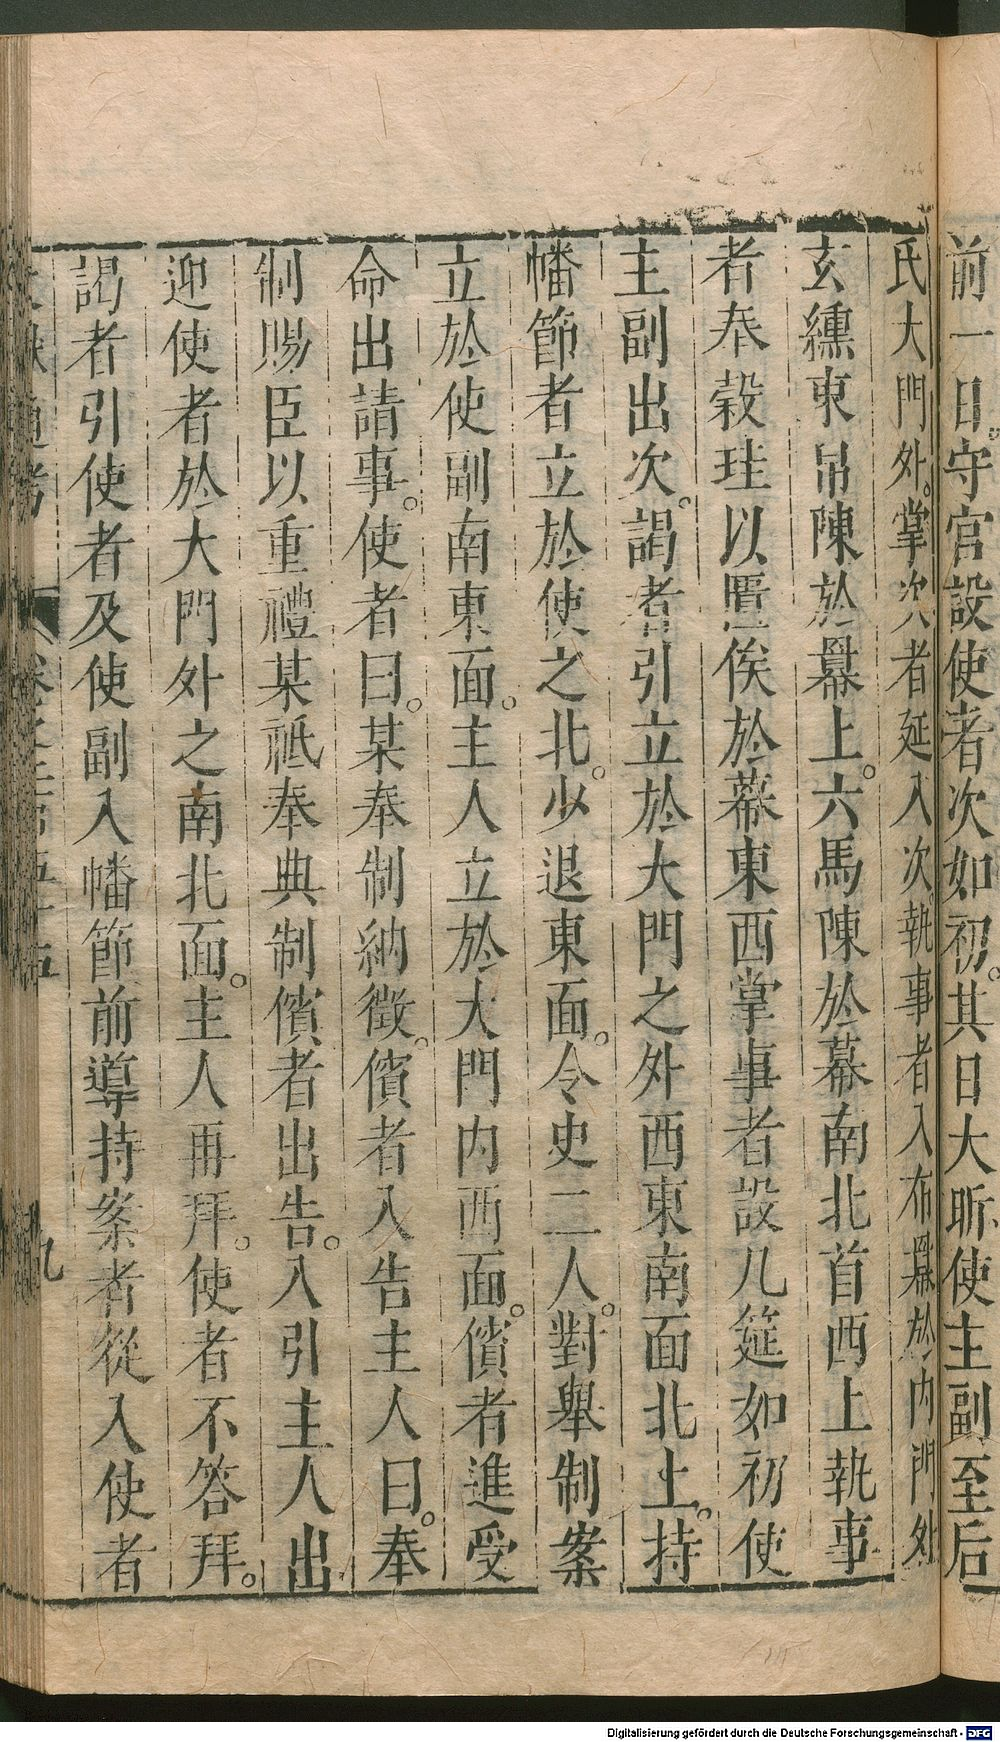 前一日。守宮設使者次如初。其日大昕使主副至后
氏大門外。掌次者延入次。執事者入布冪於內門外
玄纁束帛陳於冪上。六馬陳於幕南北首西上執事
者奉榖珪以匱俟於幕東西掌事者設几筵如初使
主副出次。謁者引立於大門之外西東南面北上。持
幡節者立於使之北。少退東面。令史二人。對舉制案
立於使副南東面。主人立於大門內西面。儐者進受
命出請事。使者曰。某奉制納徵。儐者入告主人曰。奉
制賜臣以重禮某祗奉典制儐者出告。入引主人出
迎使者於大門外之南北面。主人再拜。使者不答拜。
謁者引使者及使副入幡節前導持案者從入使者
九
Digitalisierung gefördert durch die Deutsche Forschungsgemeinschaft - DFG